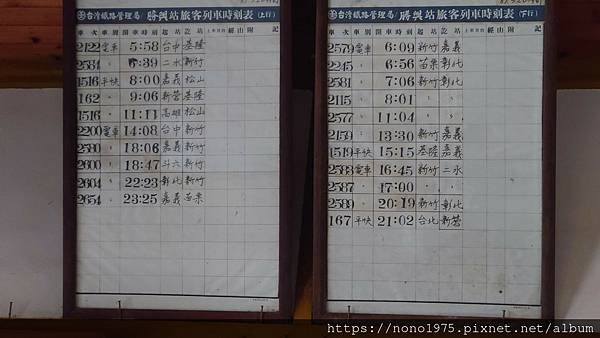 台灣鐵路管理局 勝興站旅客列車時刻表(上行)
車次 車別 開車時刻 起站 訖站 經由 附記
2122 電車 5:58 台中 基隆
2584 〃 7:39 二水 新竹
1516 平快 8:00 嘉義 松山
162 〃 9:06 新營 基隆
1516 〃 11:11 高雄 松山
2200 電車 14:08 台中 新竹
2580 〃 18:06 嘉義 新竹
2600 〃 18:47 斗六 新竹
2604 〃 22:23 彰化 新竹
2654 〃 23:25 嘉義 苗栗
台灣鐵路管理局 勝興站旅客列車時刻表(下行)
車次 車別 開車時刻 起站 訖站 經由 附記
2579 電車 6:09 新竹 嘉義
2245 〃 6:56 苗栗 彰化
2581 〃 7:06 新竹 彰化
2115 〃 8:01 〃 〃
2577 〃 11:04 〃 〃
2159 〃 13:30 新竹 嘉義
1519 平快 15:15 基隆 嘉義
2583 電車 16:45 新竹 二水
2587 〃 17:00 〃 〃
2589 〃 20:19 新竹 彰化
167 平快 21:02 台北 新營
https://nono1975.pixnet.net/album